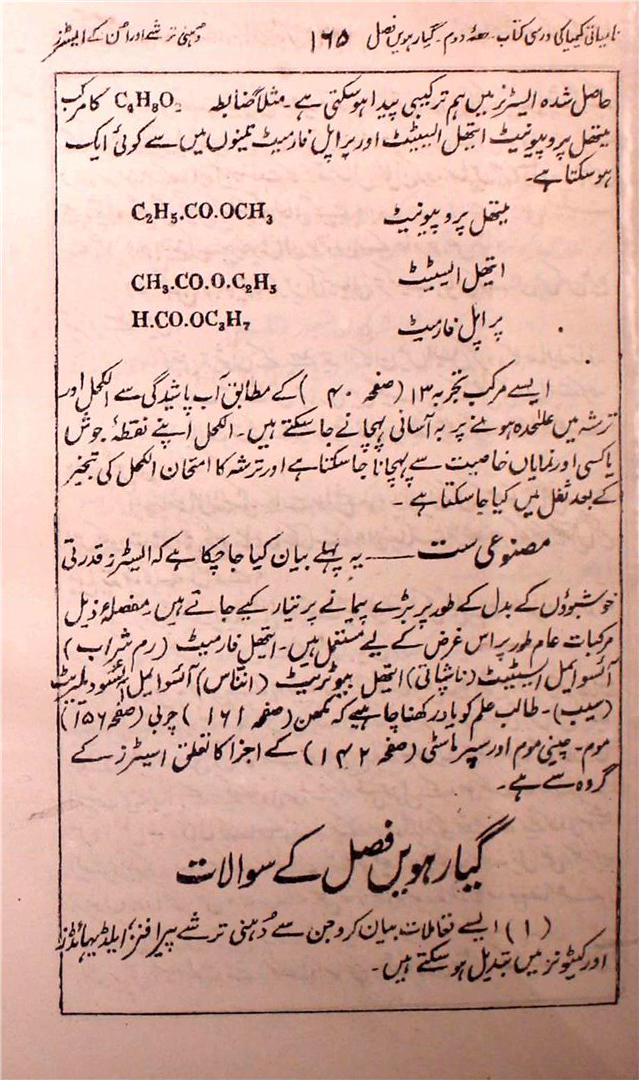 نامیاتی کیمیا کی درسی کتاب - حصۂ دوم - گیارہویں فصل ۱۶۵ دُہنی ترشے اور اُن کے ایسٹرز
حاصل شدہ ایسٹرز میں ہم ترکیبی پیدا ہوسکتی ہے۔ مثلاً ضابطہ C₄H₈O₂ کا مرکب
میتھل پروپیونیٹ ایتھل ایسیٹیٹ اور پراپل فارمیٹ تینوں میں سے کوئی ایک
ہوسکتا ہے۔
میتھل پروپیونیٹ C₂H₅.CO.OCH₃
ایتھل ایسیٹیٹ CH₃.CO.O.C₂H₅
پراپل فارمیٹ H.CO.OC₃H₇
ایسے مرکب تجربہ ۱۳ (صفحہ ۴۰) کے مطابق آب پاشیدگی سے الکحل اور
ترشہ میں علٰحدہ ہونے پر بہ آسانی پہچانے جاسکتے ہیں۔ الکحل اپنے نقطۂ جوش
یا کسی اور نمایاں خاصیت سے پہچانا جاسکتا ہے اور ترشہ کا امتحان الکحل کی تبخیر
کے بعد ثفل میں کیا جاسکتا ہے۔
مصنوعی ست — یہ پہلے بیان کیا جاچکا ہے کہ ایسٹرز قدرتی
خوشبوؤں کے بدل کے طور پر بڑے پیمانے پر تیار کیے جاتے ہیں۔ مفصلۂ ذیل
مرکبات عام طور پر اس غرض کے لیے مستعمل ہیں۔ ایتھل فارمیٹ (رم شراب)
آئسوایمل ایسیٹیٹ (ناشپاتی) ایتھل بیوٹریٹ (انناس) آئسوایمل آئسوویلریٹ
(سیب)۔ طالب علم کو یاد رکھنا چاہیے کہ مکھن (صفحہ ۱۶۱) چربی (صفحہ ۱۵۶)
موم۔ چینی موم اور سپرماسٹی (صفحہ ۱۴۲) کے اجزا کا تعلق اسیٹرز کے
گروہ سے ہے۔
گیارہویں فصل کے سوالات
(۱) ایسے تعاملات بیان کرو جن سے دُہنی ترشے پیرافنز، ایلڈیہائڈز
اور کیٹونز میں تبدیل ہوسکتے ہیں۔